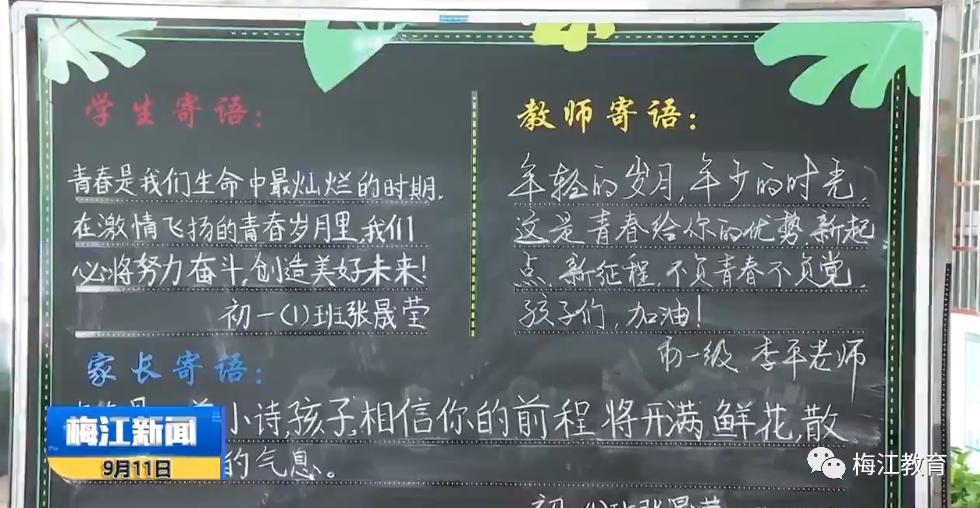 学生寄语:
青春是我们生命中最灿烂的时期.
在激情飞扬的青春岁月里,我们
必将努力奋斗,创造美好未来!
初一(1)班张晟莹
教师寄语:
年轻的岁月,年少的时光,
这是青春给你的优势.新起
点,新征程,不负青春不负党,
孩子们,加油!
初一级 李平老师
家长寄语:
小诗,孩子,相信你的前程,将开满鲜花,散
的气息。
初一(1)班张晟莹
梅江新闻
9月11日
梅江教育